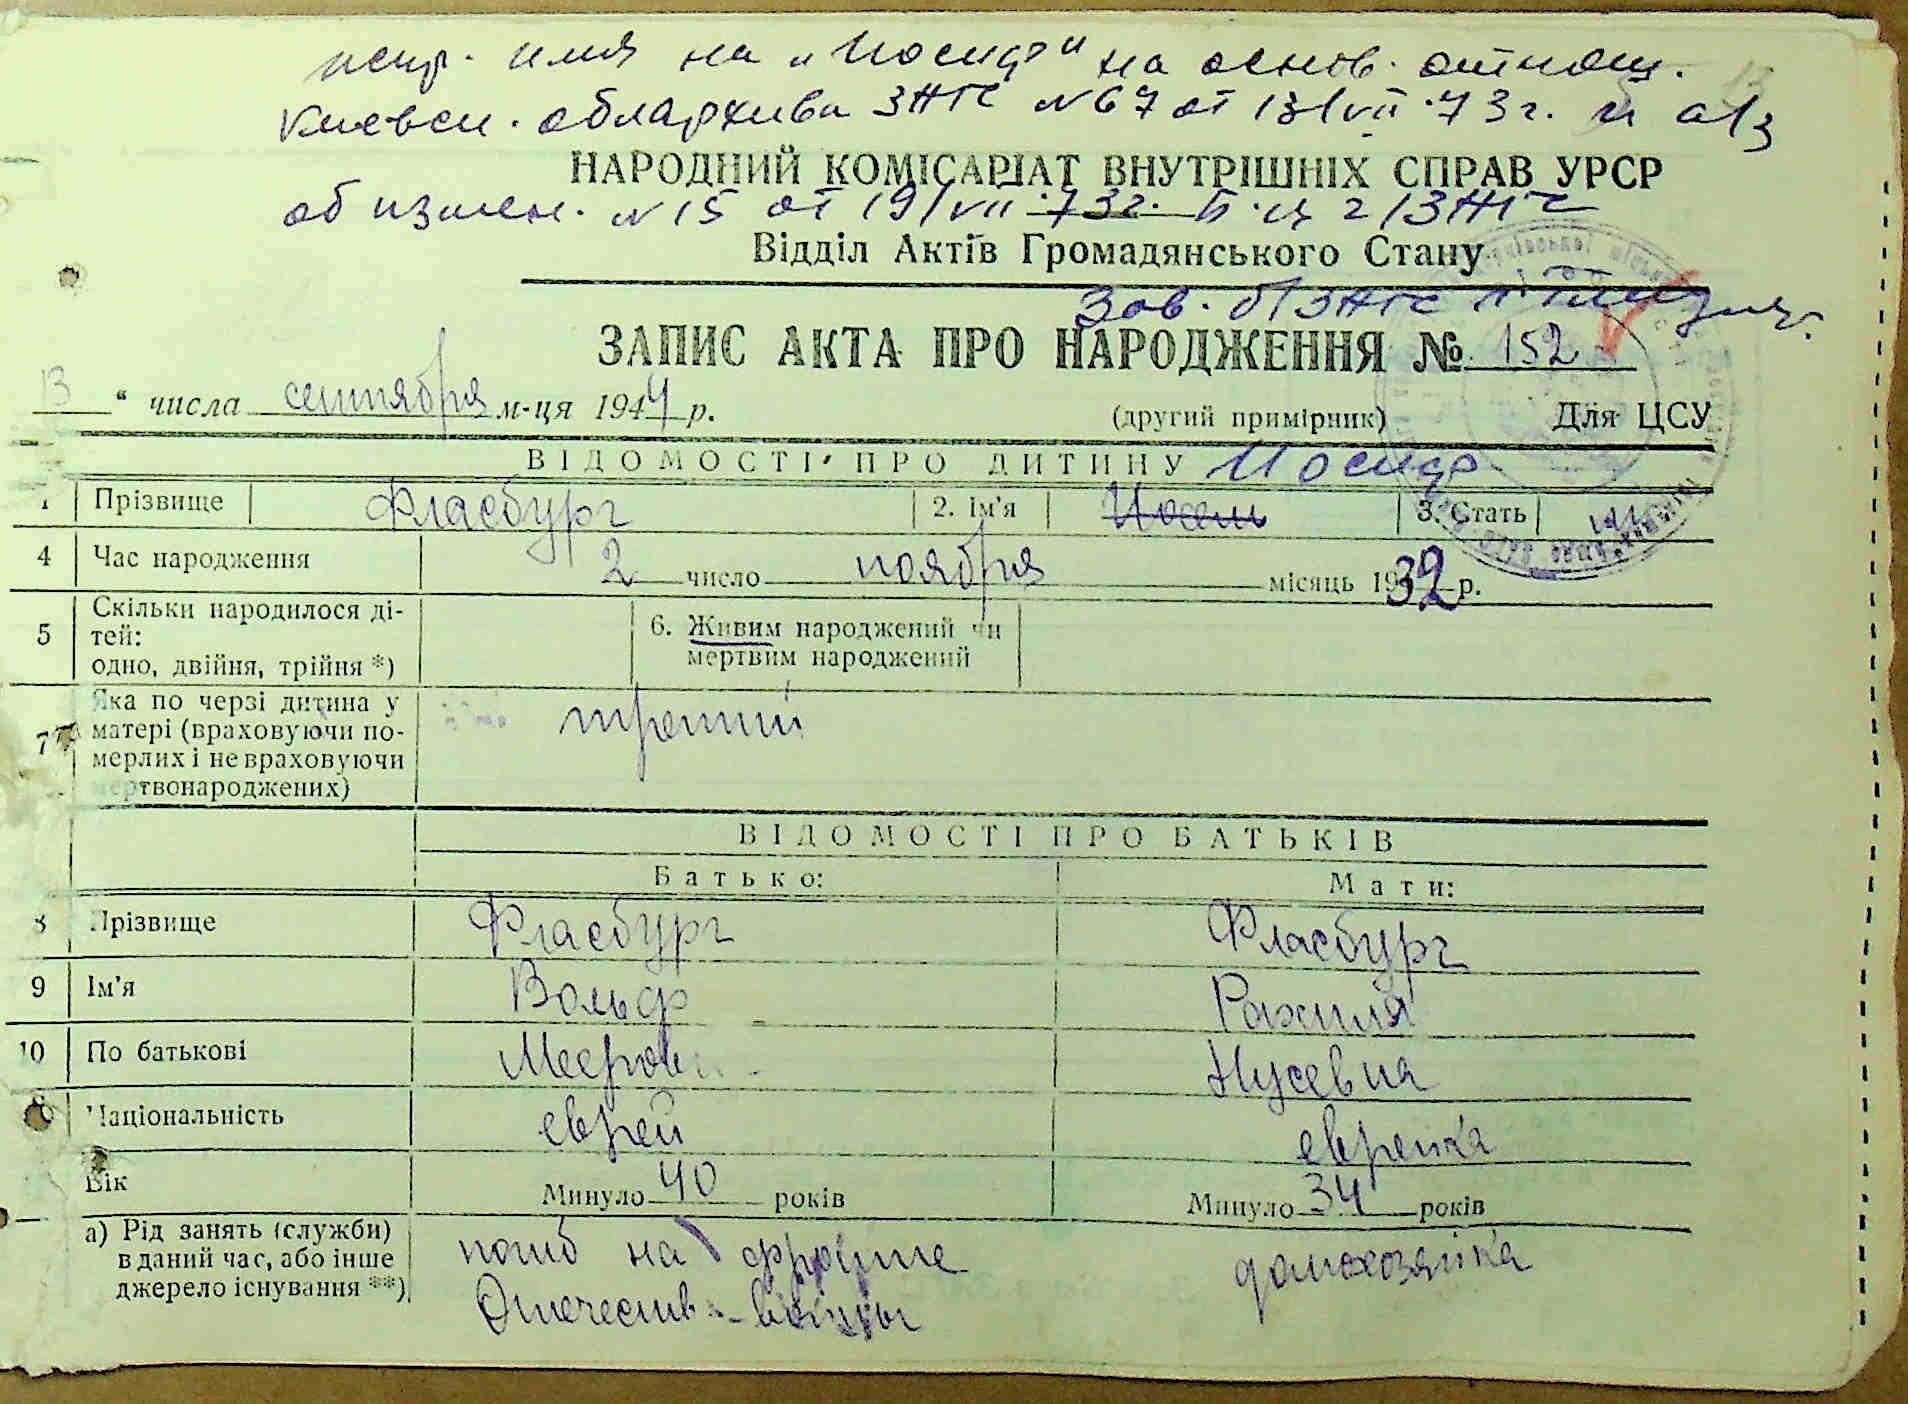 испр. имя на "Иосиф" на основ. отнош.
Киевск. облархива ЗАГС №67 от 13/VII.73г. и а/з
НАРОДНИЙ КОМІСАРІАТ ВНУТРІШНІХ СПРАВ УРСР
об измен. №15 от 19/VII.73г.
Відділ Актів Громадянського Стану
Зав. б/ЗАГС
ЗАПИС АКТА ПРО НАРОДЖЕННЯ № 152
13 " числа сентября м-ця 1944 р. (другий примірник) Для ЦСУ
ВІДОМОСТІ ПРО ДИТИНУ Иосиф
1 Прізвище Фласбург 2. Ім'я 3. Стать м
4 Час народження 2 число ноября місяць 1939 р.
Скільки народилося ді-
5 тей: 6. Живим народжений чи
одно, двійня, трійня *) мертвим народжений
Яка по черзі дитина у третий
7 матері (враховуючи по-
мерлих і не враховуючи
мертвонароджених)
ВІДОМОСТІ ПРО БАТЬКІВ
Батько: Мати:
8 Прізвище Фласбург Фласбург
9 Ім'я Вольф Рахиля
10 По батькові Меерови Нусевна
Національність еврей еврейка
Вік Минуло 40 років Минуло 34 років
а) Рід занять (служби) погиб на фронте домохозяйка
в даний час, або інше
джерело існування **) Отечеств. войны